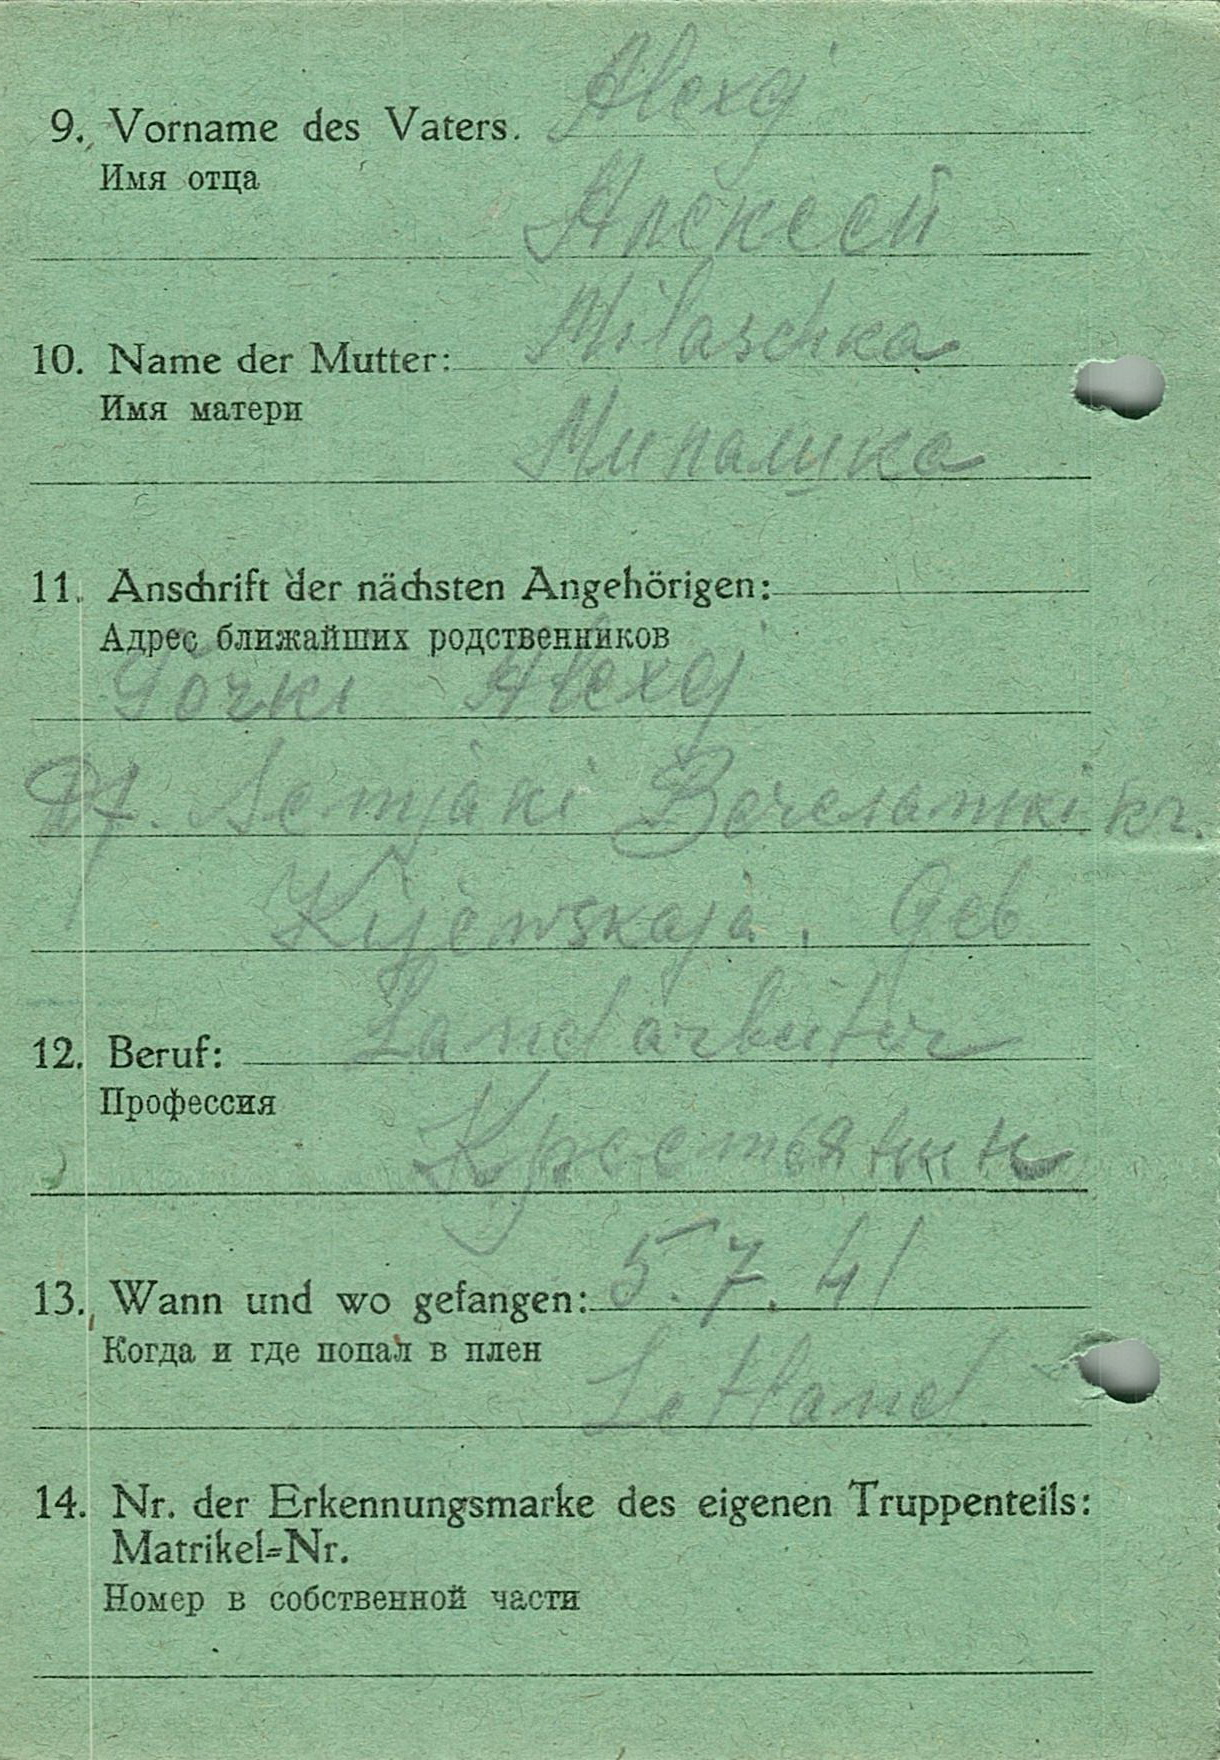 9. Vorname des Vaters. Alexej
Имя отца
Алексей
10. Name der Mutter: Milaschka
Имя матери
Милашка
11. Anschrift der nächsten Angehörigen:
Адрес ближайших родственников
Alexej
Df. Semjaki kr.
Kijewskaja. Geb
12. Beruf: Landarbeiter
Профессия
Крестьянин
13. Wann und wo gefangen: 5.7.41
Когда и где попал в плен
Lettland.
14. Nr. der Erkennungsmarke des eigenen Truppenteils:
Matrikel-Nr.
Номер в собственной части